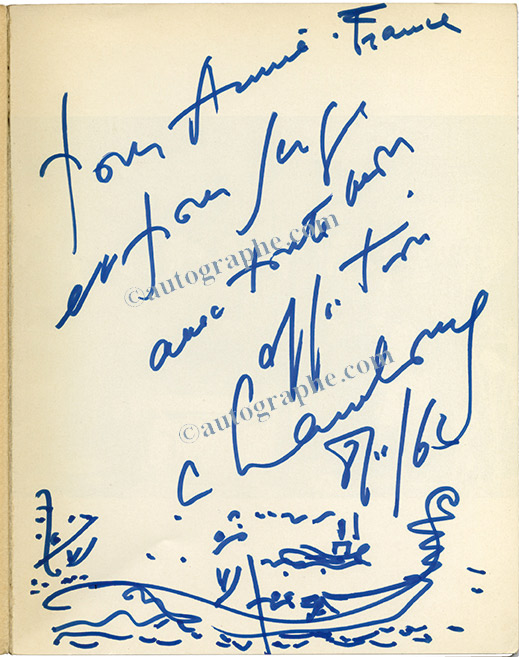 Pour Annie-France
et pour Serge
avec toute mon
affection
C
/62
©autographe.com
©autographe.com